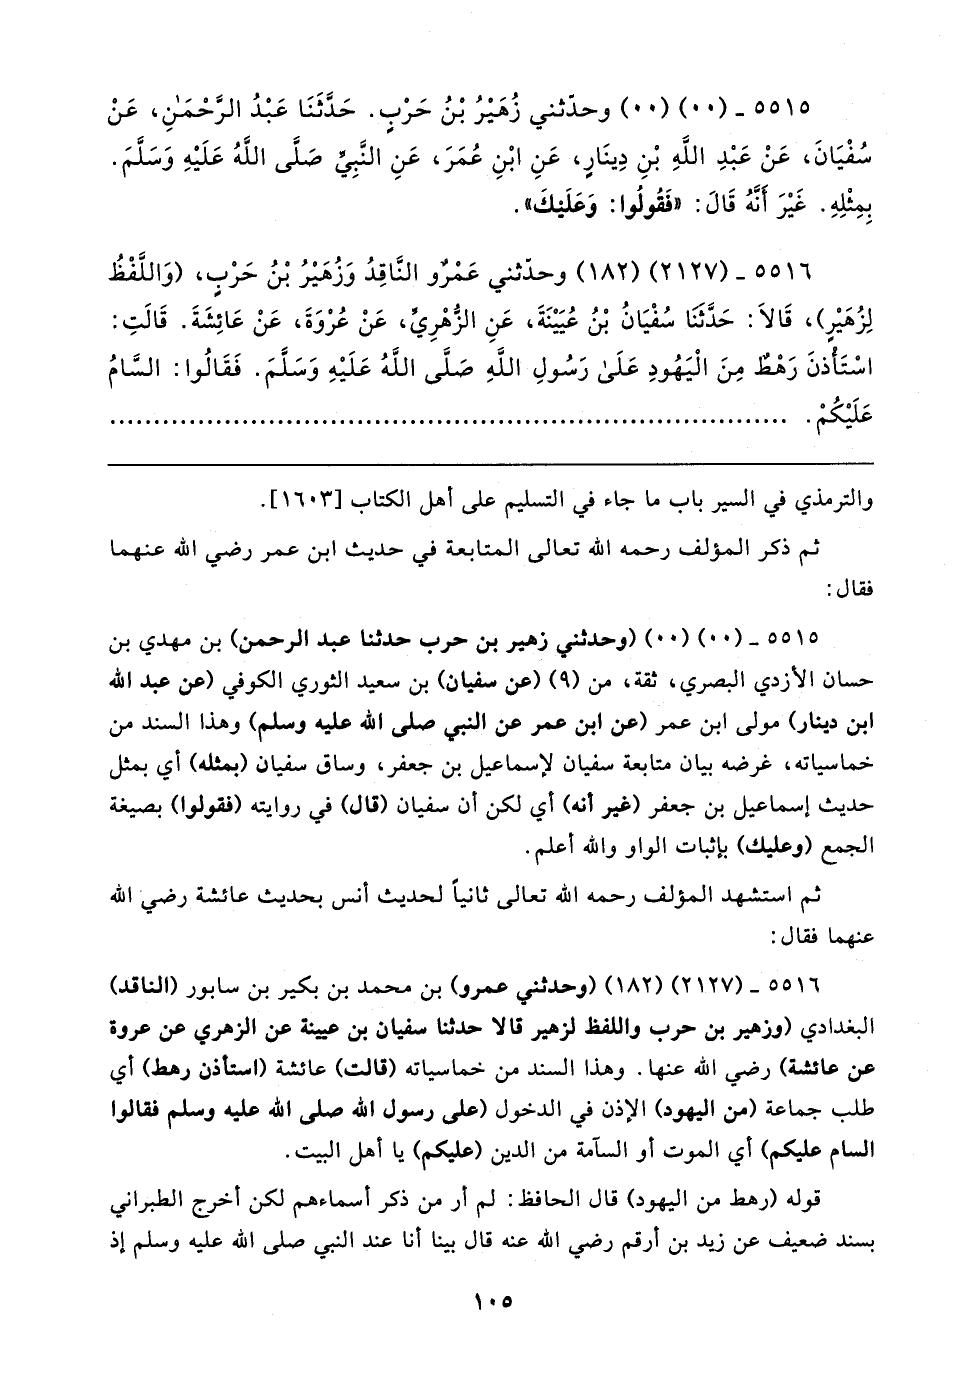 ٥٥١٥ ـ (٠٠) (٠٠) وحدّثني زُهَيْرُ بْنُ حَرْبٍ. حَدَّثَنَا عَبْدُ الرَّحْمَٰنِ، عَنْ
سُفْيَانَ، عَنْ عَبْدِ اللَّهِ بْنِ دِينَارٍ، عَنِ ابْنِ عُمَرَ، عَنِ النَّبِيِّ صَلَّى اللَّهُ عَلَيْهِ وَسَلَّمَ.
بِمِثْلِهِ. غَيْرَ أَنَّهُ قَالَ: «فَقُولُوا: وَعَلَيْكَ».
٥٥١٦ ـ (٢١٢٧) (١٨٢) وحدّثني عَمْرٌو النَّاقِدُ وَزُهَيْرُ بْنُ حَرْبٍ، (وَاللَّفْظُ
لِزُهَيْرٍ)، قَالاَ: حَدَّثَنَا سُفْيَانُ بْنُ عُيَيْنَةَ، عَنِ الزُّهْرِيِّ، عَنْ عُرْوَةَ، عَنْ عَائِشَةَ. قَالَتِ:
اسْتَأْذَنَ رَهْطٌ مِنَ الْيَهُودِ عَلَىٰ رَسُولِ اللَّهِ صَلَّى اللَّهُ عَلَيْهِ وَسَلَّمَ. فَقَالُوا: السَّامُ
عَلَيْكُمْ. ......................................................................
والترمذي في السير باب ما جاء في التسليم على أهل الكتاب [١٦٠٣].
ثم ذكر المؤلف رحمه الله تعالى المتابعة في حديث ابن عمر رضي الله عنهما
فقال:
٥٥١٥ ـ (٠٠) (٠٠) (وحدثني زهير بن حرب حدثنا عبد الرحمن) بن مهدي بن
حسان الأزدي البصري، ثقة، من (٩) (عن سفيان) بن سعيد الثوري الكوفي (عن عبد الله
ابن دينار) مولى ابن عمر (عن ابن عمر عن النبي صلى الله عليه وسلم) وهذا السند من
خماسياته، غرضه بيان متابعة سفيان لإسماعيل بن جعفر، وساق سفيان (بمثله) أي بمثل
حديث إسماعيل بن جعفر (غير أنه) أي لكن أن سفيان (قال) في روايته (فقولوا) بصيغة
الجمع (وعليك) بإثبات الواو والله أعلم.
ثم استشهد المؤلف رحمه الله تعالى ثانياً لحديث أنس بحديث عائشة رضي الله
عنهما فقال:
٥٥١٦ ـ (٢١٢٧) (١٨٢) (وحدثني عمرو) بن محمد بن بكير بن سابور (الناقد)
البغدادي (وزهير بن حرب واللفظ لزهير قالا حدثنا سفيان بن عيينة عن الزهري عن عروة
عن عائشة) رضي الله عنها. وهذا السند من خماسياته (قالت) عائشة (استأذن رهط) أي
طلب جماعة (من اليهود) الإذن في الدخول (على رسول الله صلى الله عليه وسلم فقالوا
السام عليكم) أي الموت أو السآمة من الدين (عليكم) يا أهل البيت.
قوله (رهط من اليهود) قال الحافظ: لم أر من ذكر أسماءهم لكن أخرج الطبراني
بسند ضعيف عن زيد بن أرقم رضي الله عنه قال بينا أنا عند النبي صلى الله عليه وسلم إذ
١٠٥